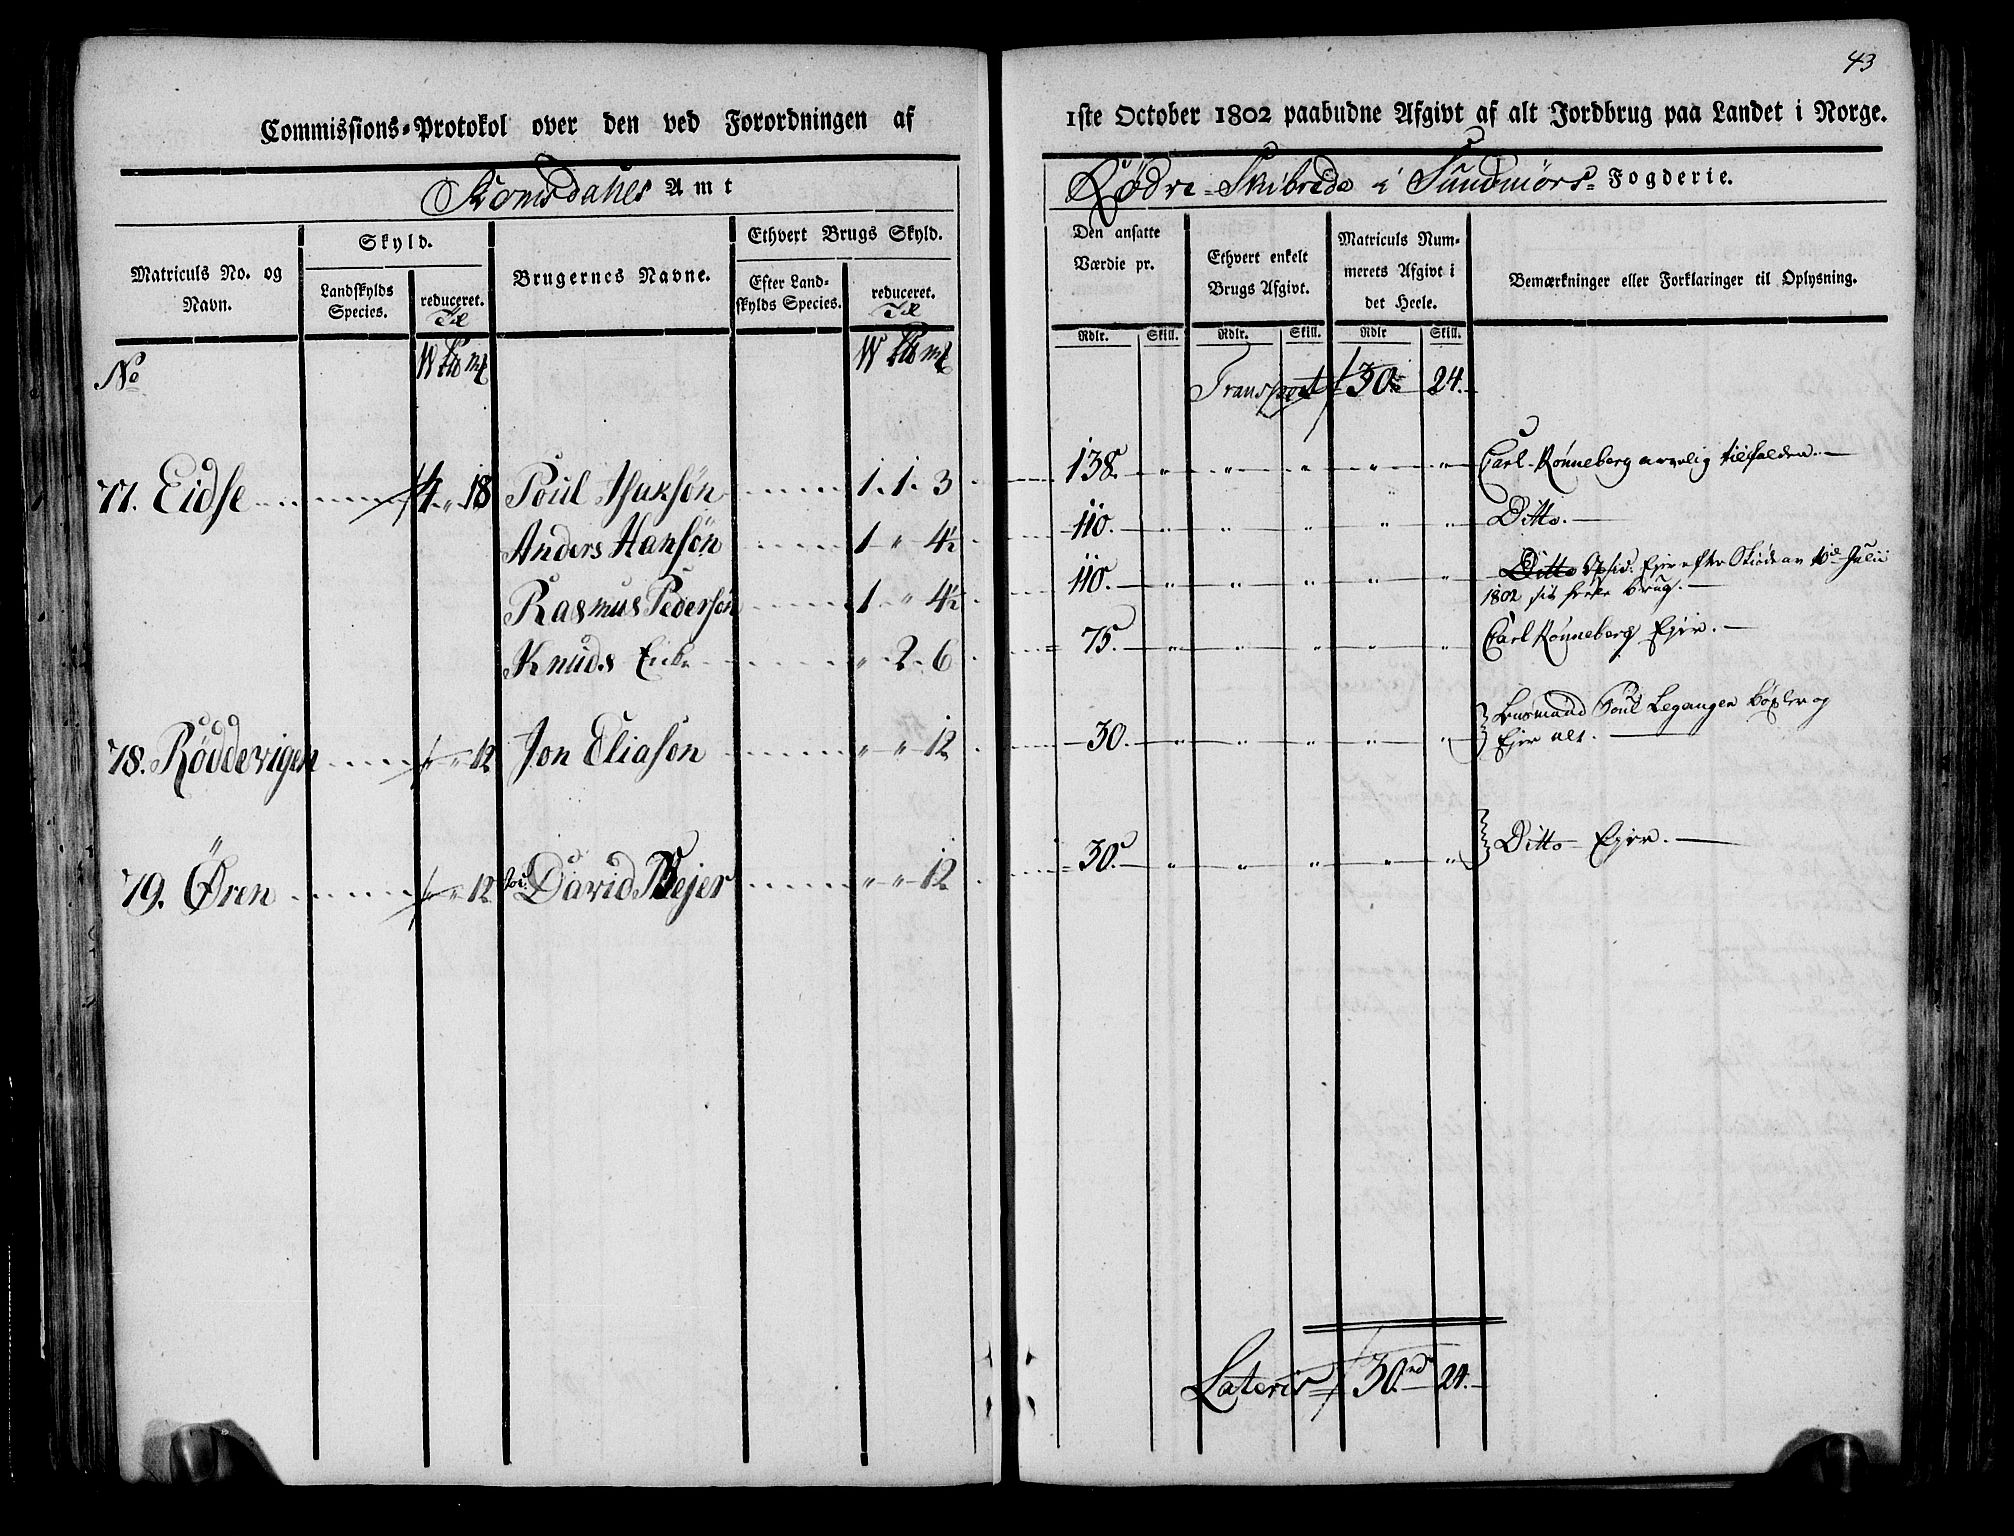 43
Commissions-Protokol over den ved Forordningen af 1ste October 1802 paabudne Afgivt af alt Jordbrug paa Landet i Norge.
Romsdahls Amt
Rødre Skibrede i Sundmørs Fogderie.
Matriculs No. og Navn.
Skyld.
Landskylds Species.
reduceret.
Brugernes Navne.
Ethvert Brugs Skyld.
Efter Landskylds Species.
reduceret.
Den ansatte Værdie pr.
Ethvert enkelt Brugs Afgivt.
Matriculs Nummerets Afgivt i det Heele.
Bemærkninger eller Forklaringer til Oplysning.
Rdlr. Skill. Rdlr. Skill. Rdlr Skill.
No
Transport 30 24.
77. Eidse 4 " 18 Poul Isaksøn 1. 1. 3 138. " " " " " Carl Rønneberg arvelig tilfalden.
Anders Hansøn 1 " 4½ 110. " " " " " Ditto.
Rasmus Pedersøn 1 " 4½ 110. " " " " " Ditto Opsid. Ejer efter Skiøde av Julii
1802 sit Brug.
Knuds Enke " 2. 6 75. " " " " " Carl Rønneberg Ejer.
78. Røddevigen " " 12 Jon Eliasøn " " 12 30. " " " " " Poul Legangen Bøxler og
Ejer alt.
79. Øren " " 12 David Mejer " " 12 30. " " " " " Ditto Ejer.
Lateris 30. 24.